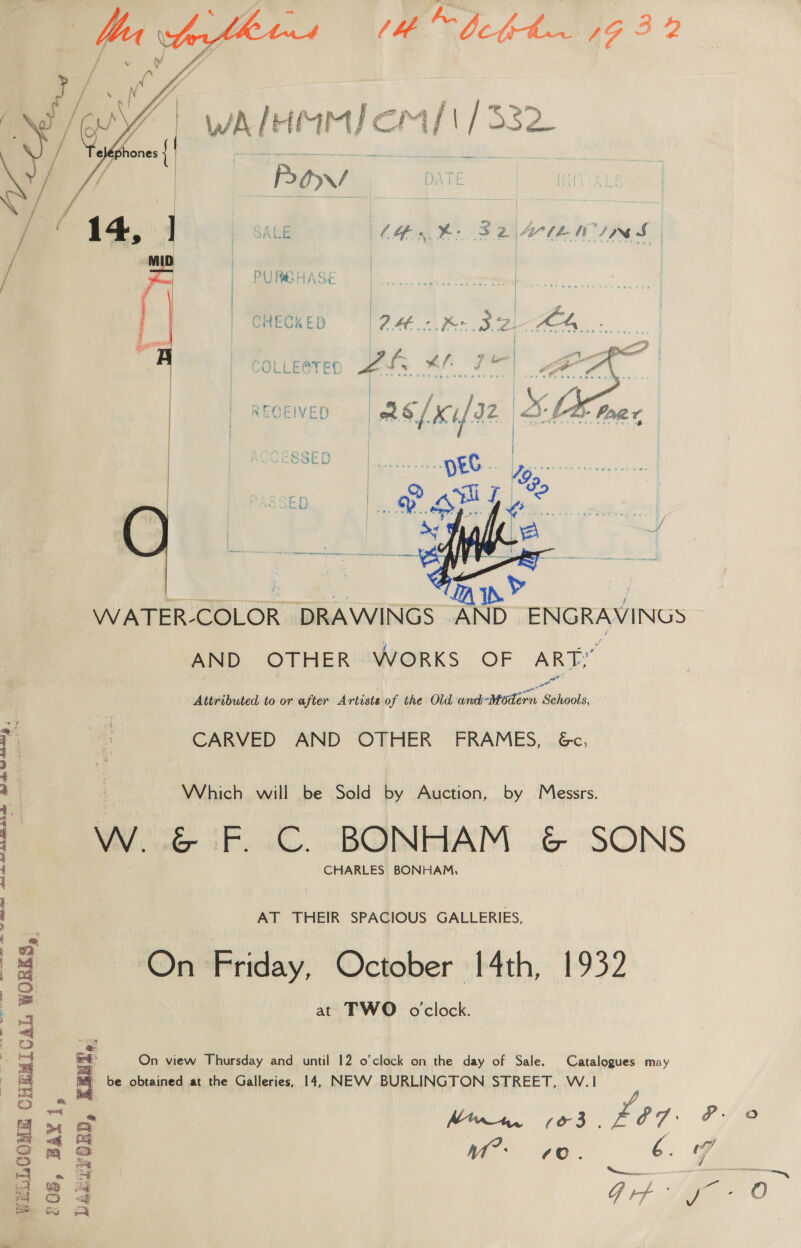 14th October 1932
WA/HMM/CM/1/332
Telephones {
Bon DATE INITIALS
14, 1
SALE 14.X.32
MID
PURCHASE
CHECKED 24.X.32
A
COLLECTED
RECEIVED 25/XI/32
ACCESSED DEC
29 1932
PASSED
O
WATER-COLOR DRAWINGS AND ENGRAVINGS
AND OTHER WORKS OF ART,
Attributed to or after Artists of the Old and Modern Schools,
CARVED AND OTHER FRAMES, &c,
Which will be Sold by Auction, by Messrs.
W. & F. C. BONHAM & SONS
CHARLES BONHAM,
AT THEIR SPACIOUS GALLERIES,
On Friday, October 14th, 1932
at TWO o'clock.
On view Thursday and until 12 o'clock on the day of Sale. Catalogues may
be obtained at the Galleries, 14, NEW BURLINGTON STREET, W.1
103. £87. 8. 0
10. 6. 17
94. 5. 0
WELLCOME CHEMICAL WORKS,
208, BAY 1,
DARTFORD, KENT.